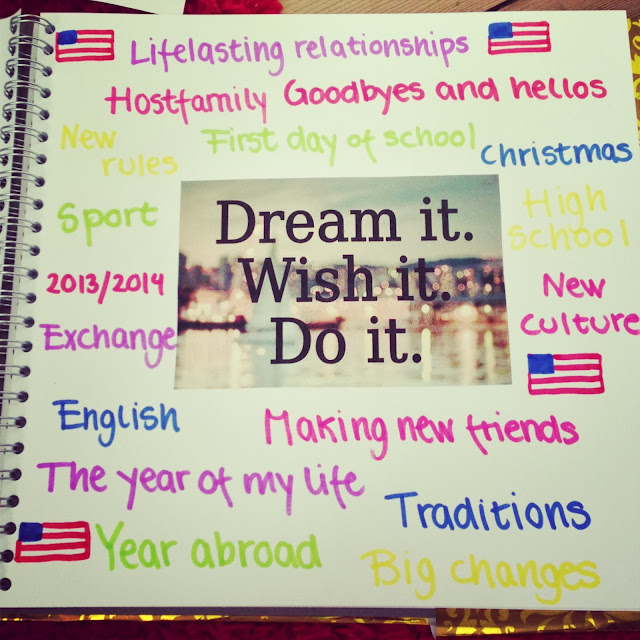 Lifelasting relationships
Hostfamily
Goodbyes and hellos
New
rules
First day of school
Christmas
Sport
High
school
Dream it.
Wish it.
Do it.
2013/2014
New
Culture
Exchange
English
Making new friends
The year of my life
Traditions
Year abroad
Big changes